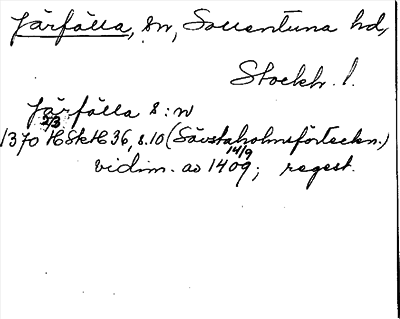 Järfälla, sn, Sollentuna hd,
Stockh. l.
Järfälla s:n
1370 2/3 HSkH 36, s. 10 (Sävstaholmsförteckn.)
vidim. av 1409 14/9; regest.